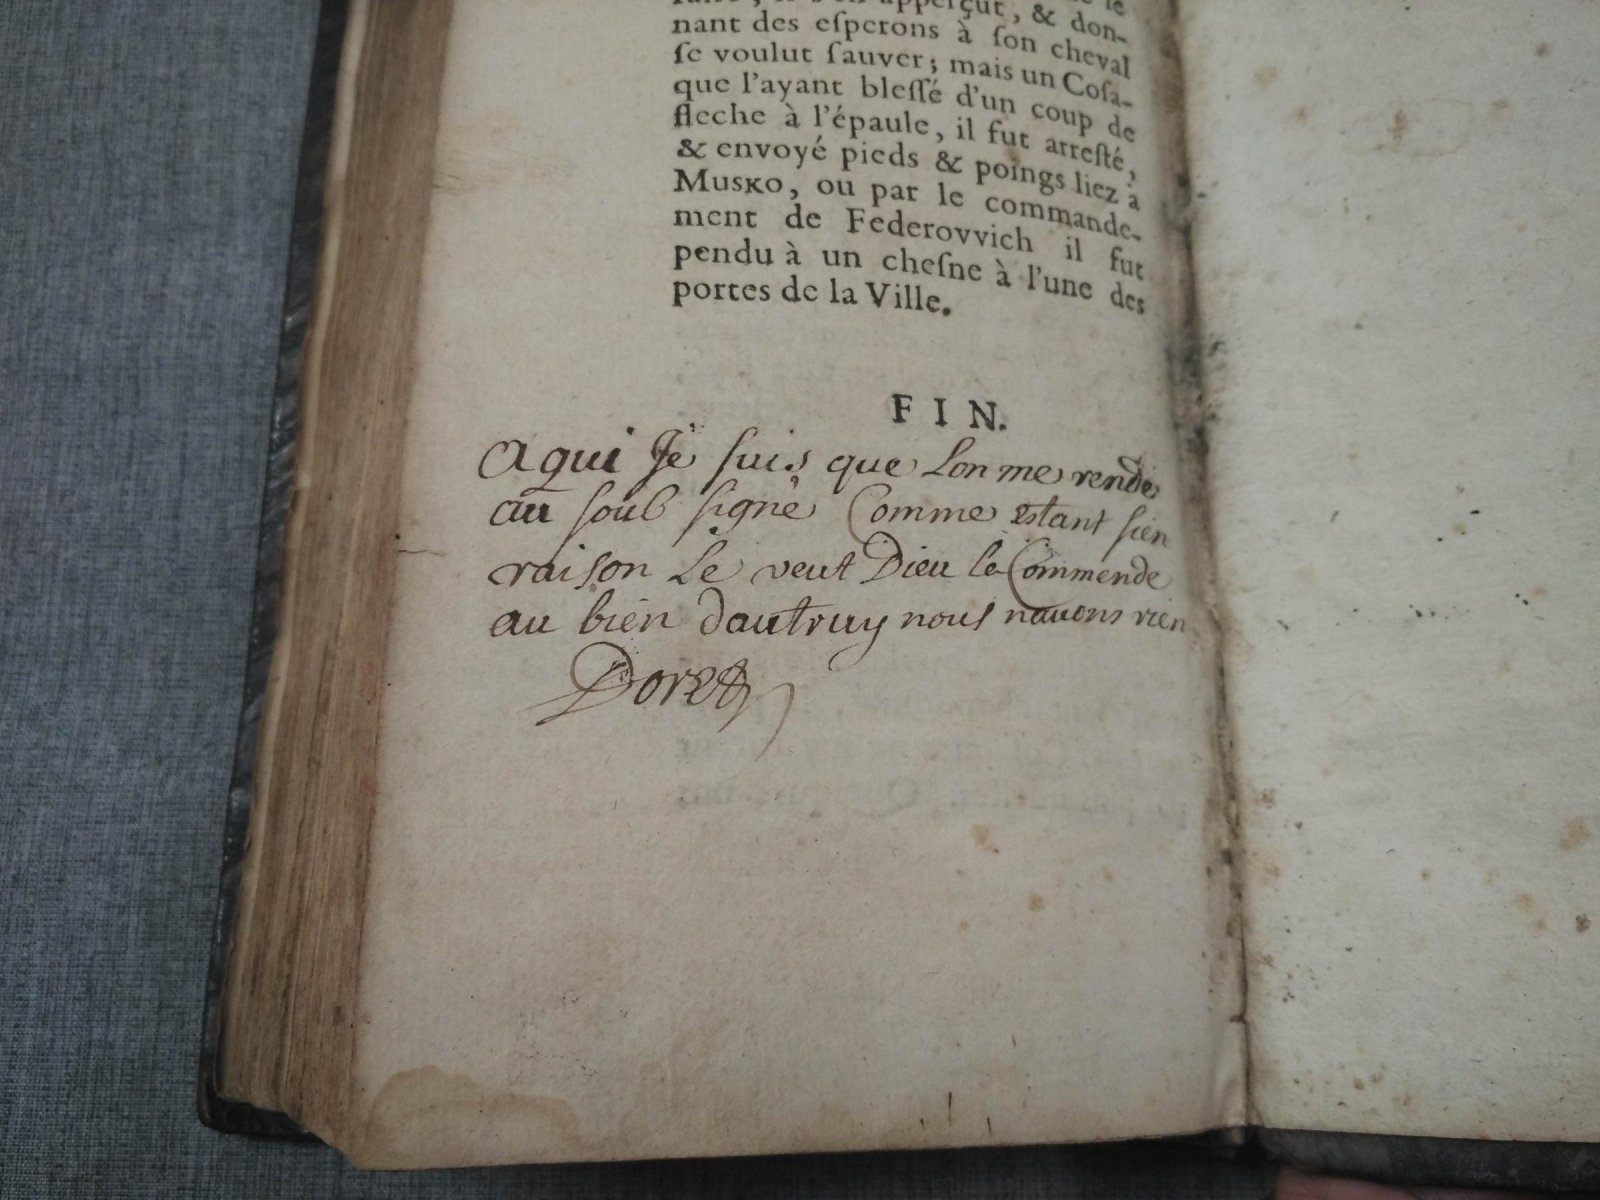 apperçut, & don-
nant des eſperons à ſon cheval
ſe voulut ſauver; mais un Coſa-
que l'ayant bleſſé d'un coup de
fleche à l'épaule, il fut arreſté,
& envoyé pieds & poings liez à
Musko, ou par le commande-
ment de Federovvich il fut
pendu à un cheſne à l'une des
portes de la Ville.
FIN.
A qui Jé suis que Lon me rende
au soub signé Comme estant sien
raison Le veut Dieu le Commende
au bien dautruy nous navons rien
Doret